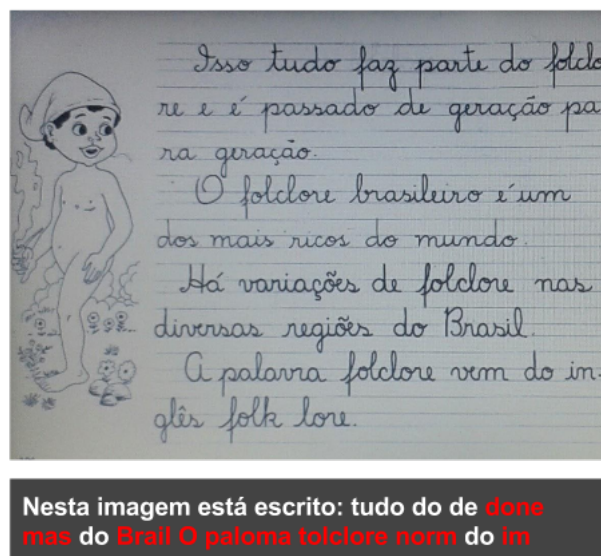 Isso tudo faz parte do folclo
re e é passado de geração pa
ra geração.
O folclore brasileiro é um
dos mais ricos do mundo.
Há variações de folclore nas
diversas regiões do Brasil.
A palavra folclore vem do in-
glês folk lore.
Nesta imagem está escrito: tudo do de done
mas do Brail O paloma tolclore norm do im